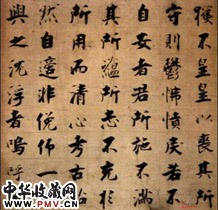 獲不皇皇以喪其所
守則鬱悱憤戾若不
自安者君所施不滿
其所蘊志不充於
所用而清心考古
然自適非俛仰一
與之沉浮者嗚呼
中华收藏网